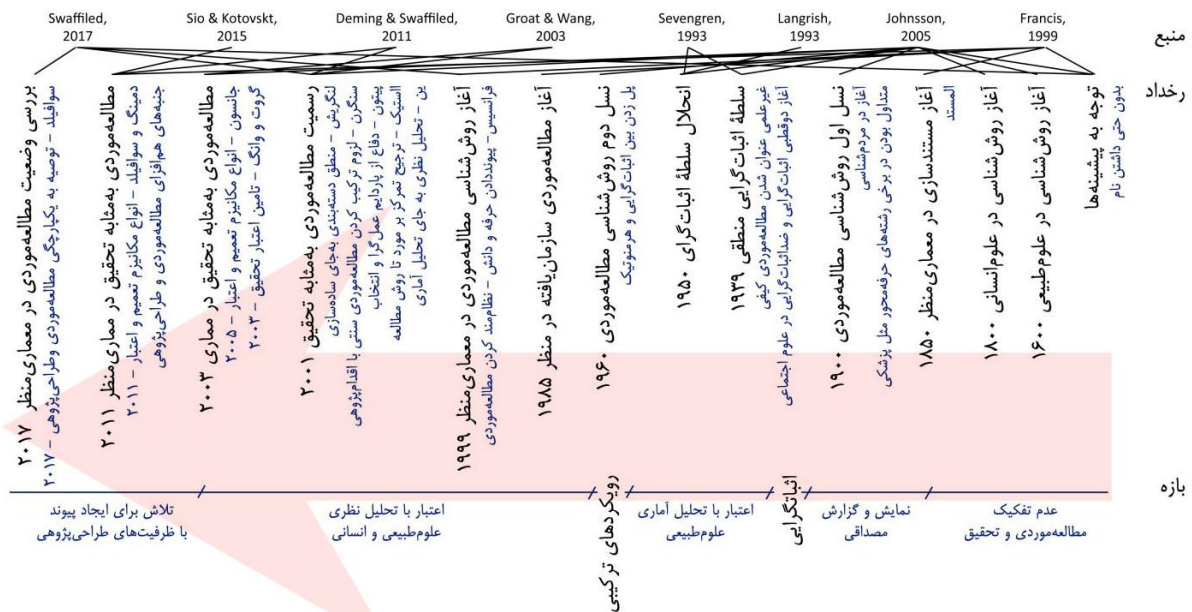 Swaffiled,
2017
Sio & Kotovskt,
2015
Deming & Swaffiled,
2011
Groat & Wang,
2003
Sevengren,
1993
Langrish,
1993
Johnsson,
2005
Francis,
1999
منبع
رخداد
توجه به پیشینه‌ها
بدون حتی داشتن نام
آغاز روش‌شناسی در علوم‌طبیعی ۱۶۰۰
آغاز روش‌شناسی در علوم‌انسانی ۱۸۰۰
آغاز مستندسازی در معماری‌منظر ۱۸۵۰
المستد
نسل اول روش‌شناسی مطالعه‌موردی ۱۹۰۰
آغاز در مردم‌شناسی
متداول بودن در برخی رشته‌های حرفه‌محور مثل پزشکی
سلطهٔ اثبات‌گرایی منطقی ۱۹۳۹
غیرعلمی عنوان شدن مطالعه‌موردی کیفی
آغاز دوقطبی اثبات‌گرایی و ضداثبات‌گرایی در علوم اجتماعی
انحلال سلطهٔ اثبات‌گرای ۱۹۵۰
نسل دوم روش‌شناسی مطالعه‌موردی ۱۹۶۰
پل زدن بین اثبات‌گرایی و هرمنوتیک
آغاز مطالعه‌موردی سازمان‌یافته در منظر ۱۹۸۵
آغاز روش‌شناسی مطالعه‌موردی در معماری‌منظر ۱۹۹۹
فرانسیس - پیونددادن حرفه و دانش - نظام‌مند کردن مطالعه‌موردی
رسمیت مطالعه‌موردی به‌مثابه تحقیق ۲۰۰۱
لنگریش - منطق دسته‌بندی به‌جای ساده‌سازی
سنگرن - لزوم ترکیب کردن مطالعه‌موردی سنتی با اقدام‌پژوهی
پیتون - دفاع از پارادایم عمل‌گرا و انتخاب
الستیک - ترجیح تمرکز بر مورد تا روش مطالعه
ین - تحلیل نظری به جای تحلیل آماری
مطالعه‌موردی به‌مثابه تحقیق در مماری ۲۰۰۳
جانسون - انواع مکانیزم تعمیم و اعتبار - ۲۰۰۵
گروت و وانگ - تامین اعتبار تحقیق - ۲۰۰۳
مطالعه‌موردی به‌مثابه تحقیق در مماری‌منظر ۲۰۱۱
دمینگ و سوافیلد - انواع مکانیزم تعمیم و اعتبار - ۲۰۱۱
جنبه‌های هم‌افزای مطالعه‌موردی و طراحی‌پژوهی
بررسی وضعیت مطالعه‌موردی در معماری‌منظر ۲۰۱۷
سوافیلد - توصیه به یکپارچگی مطالعه‌موردی وطراحی‌پژوهی - ۲۰۱۷
بازه
عدم تفکیک
مطالعه‌موردی و تحقیق
نمایش و گزارش
مصداقی
اثباتگرایی
اعتبار با تحلیل آماری
علوم‌طبیعی
رویکردهای ترکیبی
اعتبار با تحلیل نظری
علوم‌طبیعی و انسانی
تلاش برای ایجاد پیوند
با ظرفیت‌های طراحی‌پژوهی